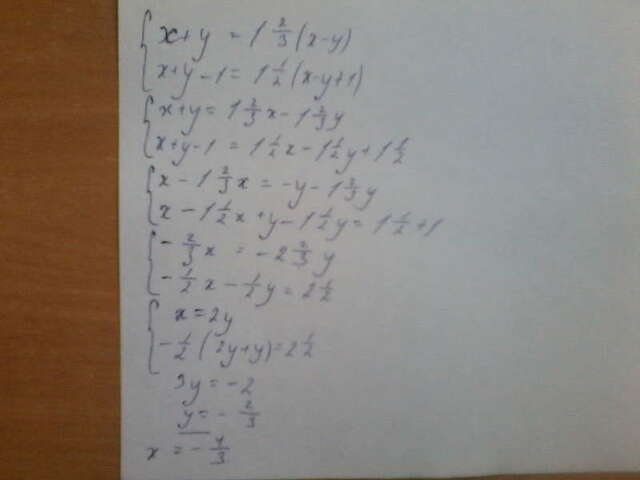 x+y = 1 2/3 (x-y)
x+y-1 = 1 1/2 (x-y+1)
x+y = 1 2/3 x - 1 2/3 y
x+y-1 = 1 1/2 x - 1 1/2 y + 1 1/2
x - 1 2/3 x = -y - 1 2/3 y
x - 1 1/2 x + y - 1 1/2 y = 1 1/2 + 1
- 2/3 x = -2 2/3 y
- 1/2 x - 1/2 y = 2 1/2
x = 2y
- 1/2 (2y+y) = 2 1/2
3y = -2
y = - 2/3
x = - 4/3